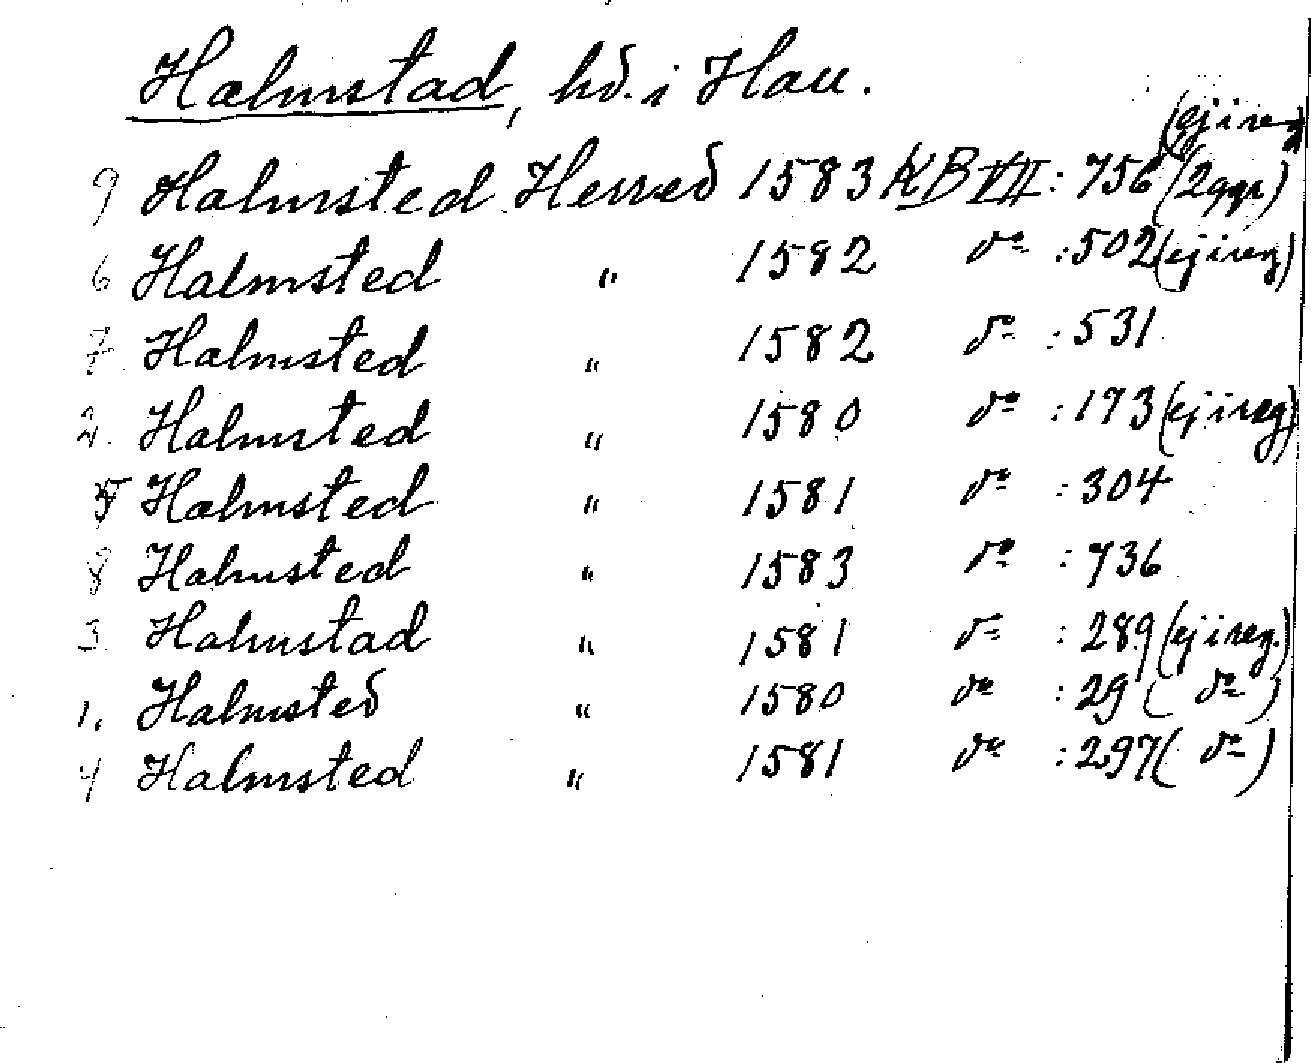 Halmstad, hd. i Hall.
(ej i reg
9 Halmsted Herred 1583 KB VII: 756 (2 ggr)
6 Halmsted " 1582 do :502 (ej i reg)
7. Halmsted " 1582 do :531
2. Halmsted " 1580 do :173 (ej i reg)
5 Halmsted " 1581 do :304
8 Halmsted " 1583 do :736
3. Halmstad " 1581 do :289 (ej i reg.)
1. Halmsted " 1580 do :29 ( do )
4 Halmsted " 1581 do :297 ( do )